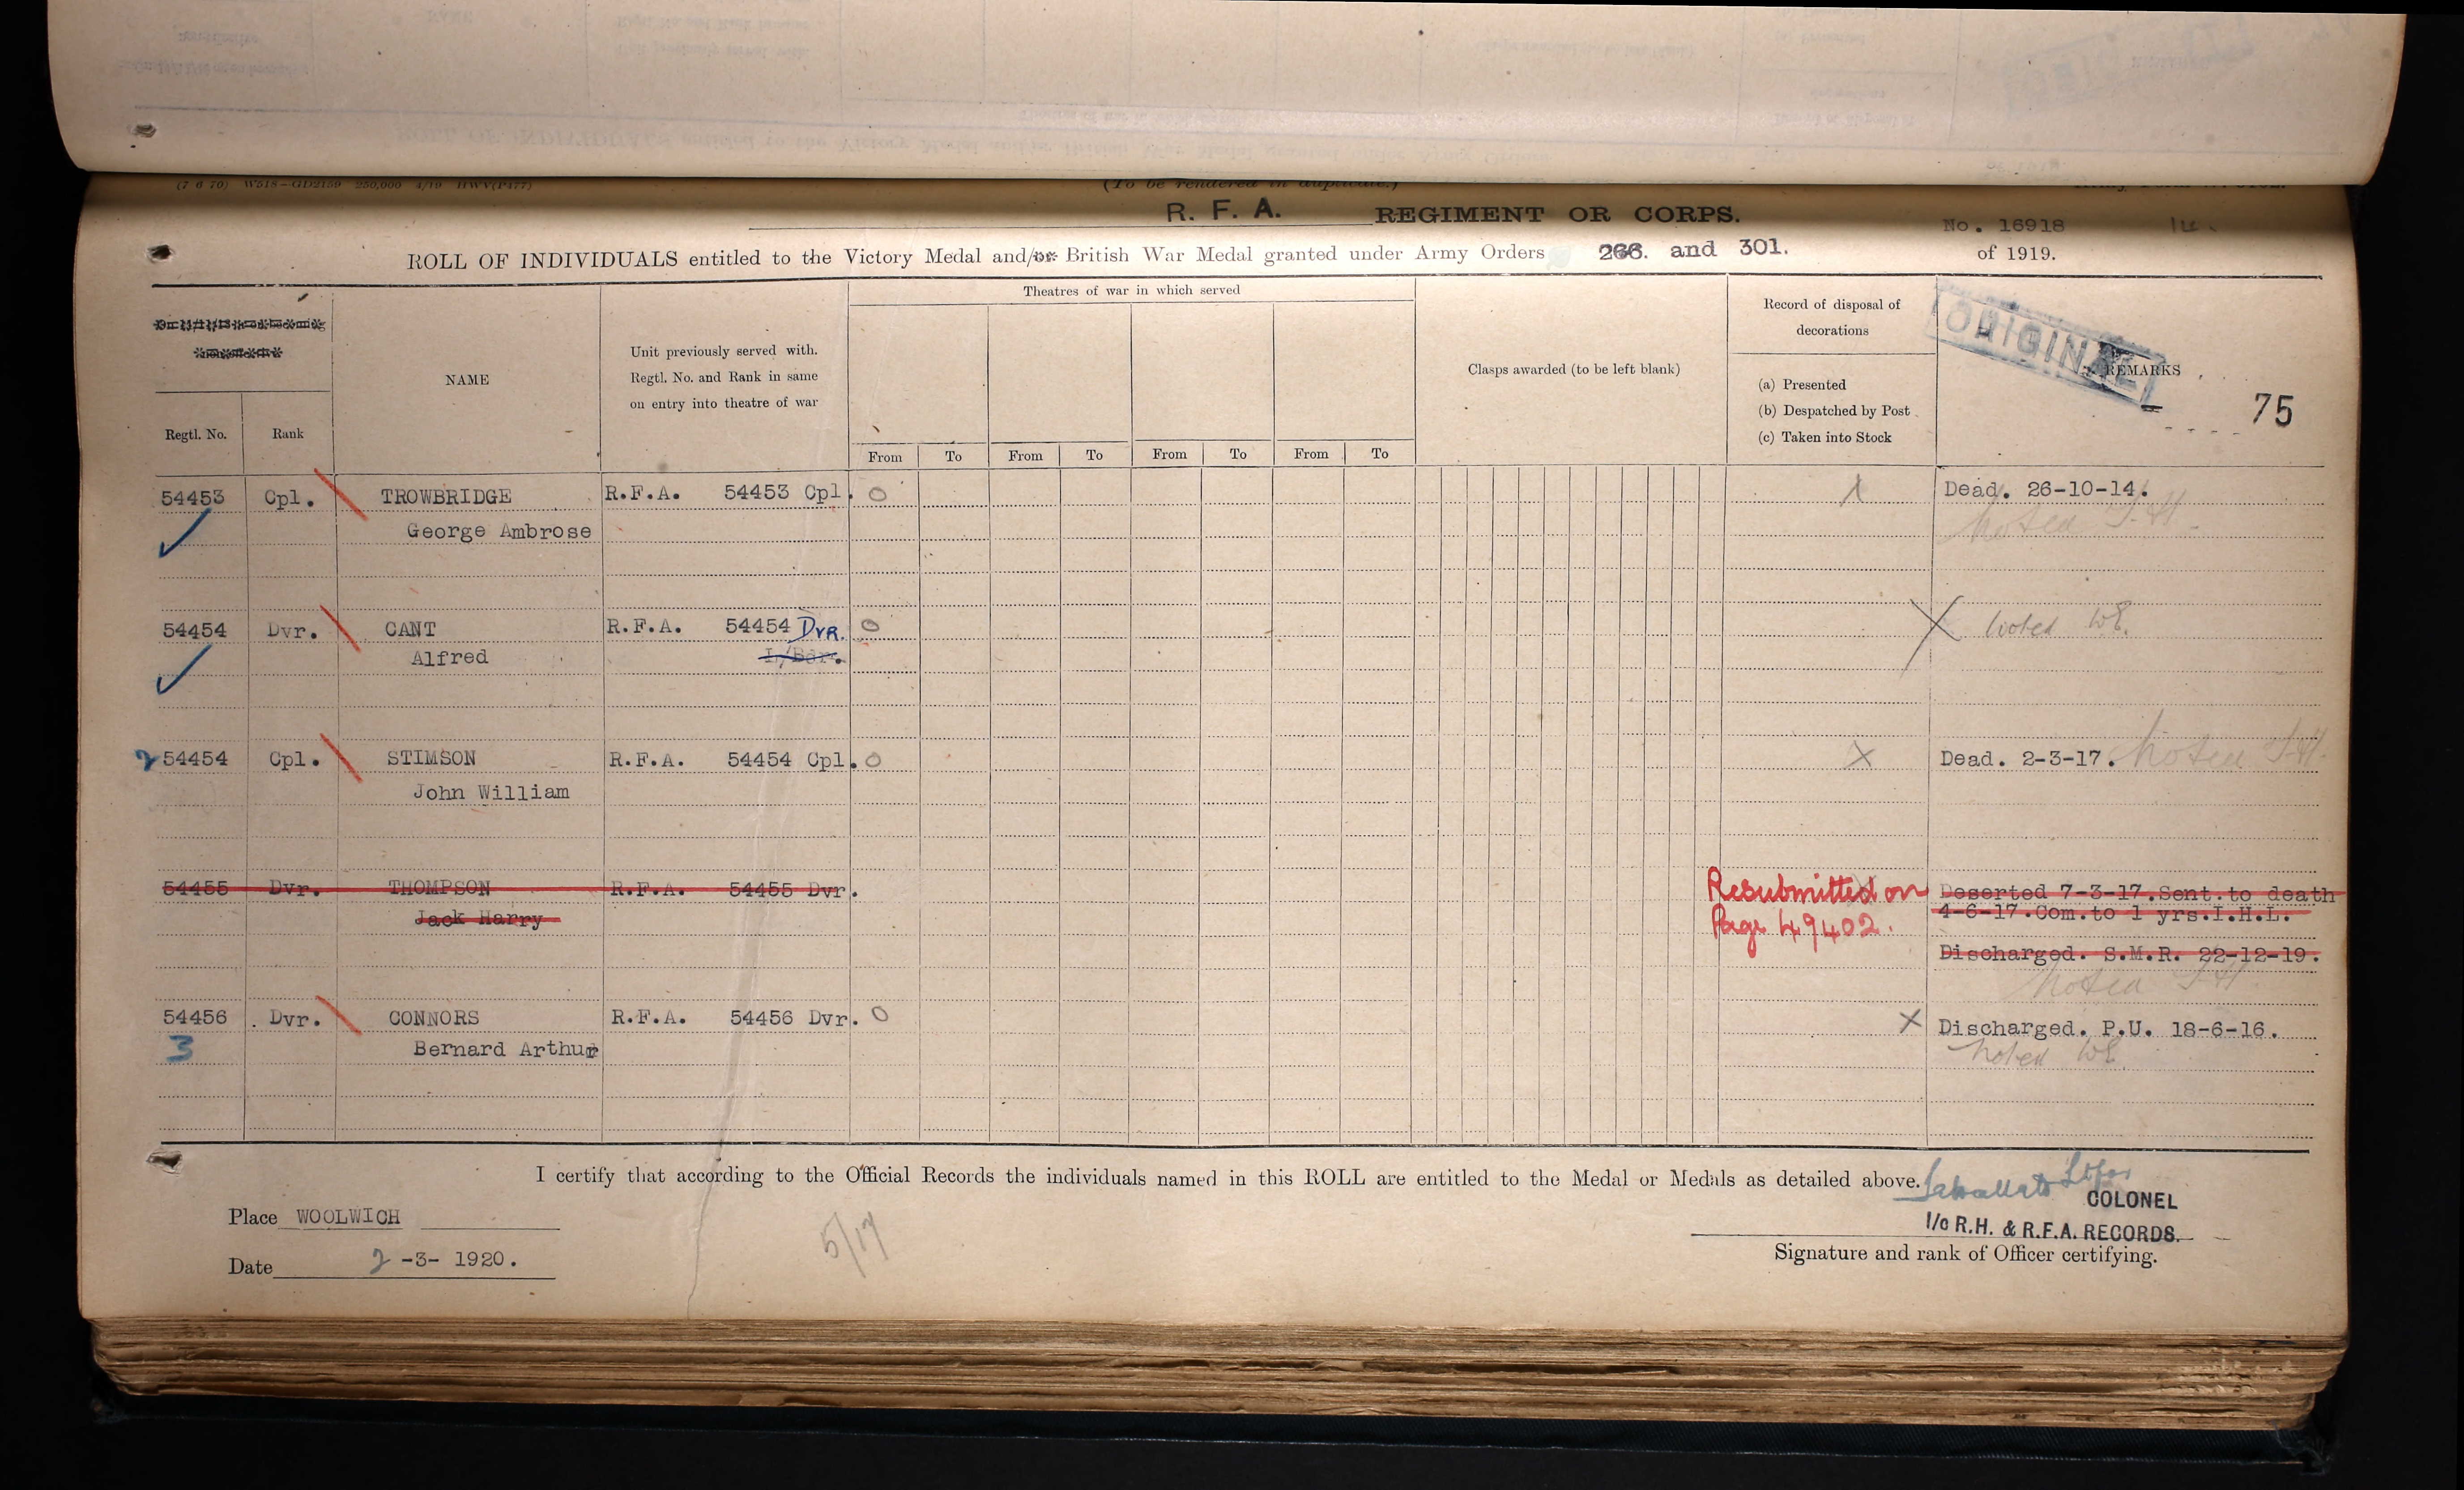 (7 6 70) W518—GD2159 250,000 4/19 HWV(P477)
(To be rendered in duplicate.)
R. F. A. REGIMENT OR CORPS.
No. 16918
ROLL OF INDIVIDUALS entitled to the Victory Medal and/or British War Medal granted under Army Orders 266. and 301. of 1919.
ORIGINAL
75
Theatres of war in which served
Record of disposal of
decorations
Unit previously served with.
Regtl. No. and Rank in same
on entry into theatre of war
NAME
Clasps awarded (to be left blank)
REMARKS
(a) Presented
(b) Despatched by Post
(c) Taken into Stock
Regtl. No. Rank
From To From To From To From To
54453 Cpl. TROWBRIDGE R.F.A. 54453 Cpl. O Dead. 26-10-14.
George Ambrose Noted
54454 Dvr. CANT R.F.A. 54454 Dvr. O X Noted WE.
Alfred L/Bdr.
2 54454 Cpl. STIMSON R.F.A. 54454 Cpl. O X Dead. 2-3-17. Noted
John William
54455 Dvr. THOMPSON R.F.A. 54455 Dvr. Resubmitted on Deserted 7-3-17.Sent.to death
Jack Harry Page 49402. 4-6-17.Com.to 1 yrs.I.H.L.
Discharged. S.M.R. 22-12-19.
Noted
54456 Dvr. CONNORS R.F.A. 54456 Dvr. O X Discharged. P.U. 18-6-16.
3 Bernard Arthur Noted WE.
I certify that according to the Official Records the individuals named in this ROLL are entitled to the Medal or Medals as detailed above.
COLONEL
Place WOOLWICH
5/17
I/c R.H. & R.F.A. RECORDS.
Date 2 -3- 1920.
Signature and rank of Officer certifying.